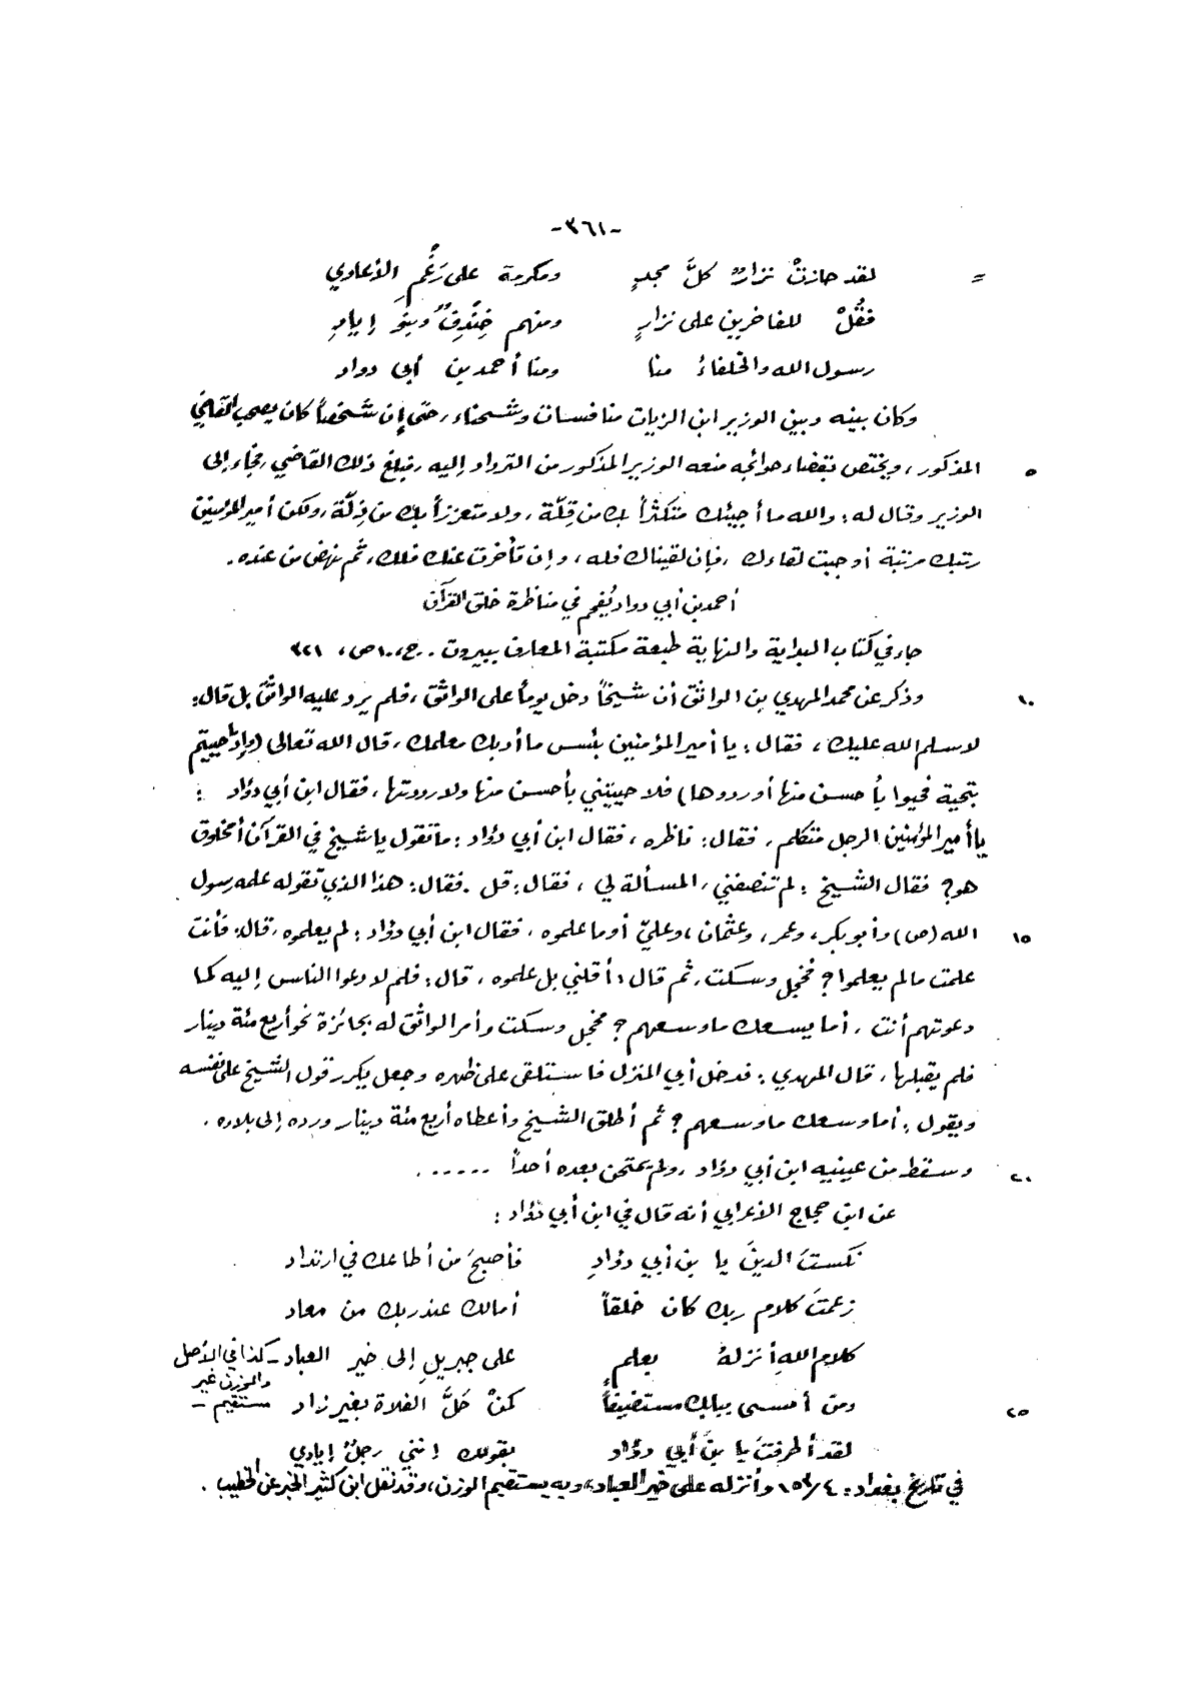 -٣٦١-
= لقد حازتْ نزارٌ كلَّ مجدٍ ومكرمة على رَغْمِ الأعادي
فقُلْ للفاخرين على نزارٍ ومنهم خِنْدِفٌ وبنو إيادِ
رسول الله والخلفاءُ منا ومنا أحمد بن أبي دواد
وكان بينه وبين الوزير ابن الزيات منافسات وشحناء، حتى إن شخصاً كان يصحب القاضي
٥ المذكور، ويختص بقضاء حوائجه منعه الوزير المذكور من الترداد إليه، فبلغ ذلك القاضي، فجاء إلى
الوزير وقال له: والله ما أجيئك متكثراً بك من قِلّة، ولا متعززاً بك من ذِلّة، ولكن أمير المؤمنين
رتبك مرتبة أوجبت لقاءك، فإن لقيناك فله، وإن تأخرت عنك فلك، ثم نهض من عنده.
أحمد بن أبي دواد يُفحم في مناظرة خلق القرآن
جاء في كتاب البداية والنهاية طبعة مكتبة المعارف ببيروت .. ج، ١٠ ص، ٣٢١
١٠ وذكر عن محمد المهدي بن الواثق أن شيخاً دخل يوماً على الواثق، فلم يرد عليه الواثق بل قال:
لا سلم الله عليك، فقال: يا أمير المؤمنين بئس ما أدبك معلمك، قال الله تعالى (وإذا حييتم
بتحية فحيوا بأحسن منها أو ردوها) فلا حييتني بأحسن منها ولا رددتها، فقال ابن أبي دؤاد :
يا أمير المؤمنين الرجل متكلم، فقال: ناظره، فقال ابن أبي دؤاد: ما تقول يا شيخ في القرآن أمخلوق
هو؟ فقال الشيخ: لم تنصفني، المسألة لي، فقال: قل. فقال: هذا الذي تقوله علمه رسول
١٥ الله (ص) وأبو بكر، وعمر، وعثمان، وعليّ أو ما علموه، فقال ابن أبي دؤاد: لم يعلموه، قال: فأنت
علمت مالم يعلموا؟ فخجل وسكت، ثم قال: أقلني بل علموه، قال: فلم لا دعوا الناس إليه كما
دعوتهم أنت، أما يسعك ما وسعهم؟ فخجل وسكت وأمر الواثق له بجائزة نحو أربع مئة دينار
فلم يقبلها، قال المهدي: فدخل أبي المنزل فاستلقى على ظهره وجعل يكرر قول الشيخ على نفسه
ويقول: أما وسعك ما وسعهم؟ ثم أطلق الشيخ وأعطاه أربع مئة دينار ورده إلى بلاده.
٢٠ وسقط من عينيه ابن أبي دؤاد، ولم يمتحن بعده أحداً ......
عن ابن حجاج الأعرابي أنه قال في ابن أبي دؤاد:
نكستَ الدينَ يا بن أبي دؤادِ فأصبحَ من أطاعك في ارتداد
زعمتَ كلام ربك كان خلقاً أمالك عند ربك من معاد
كلام اللهِ أنزلهُ بعلمٍ على جبريلِ إلى خير العباد - كذا في الأصل والوزن غير مستقيم -
٢٥ ومن أمسى ببابك مستضيفاً كمنْ حَلَّ الفلاة بغير زاد
لقد أطرفتَ يا بنَ أبي دؤاد بقولك إنني رجلٌ إيادي
في تاريخ بغداد: ١٥٢/٤ وأنزله على خير العباد، وبه يستقيم الوزن، وقد نقل ابن كثير الخبر عن الخطيب.